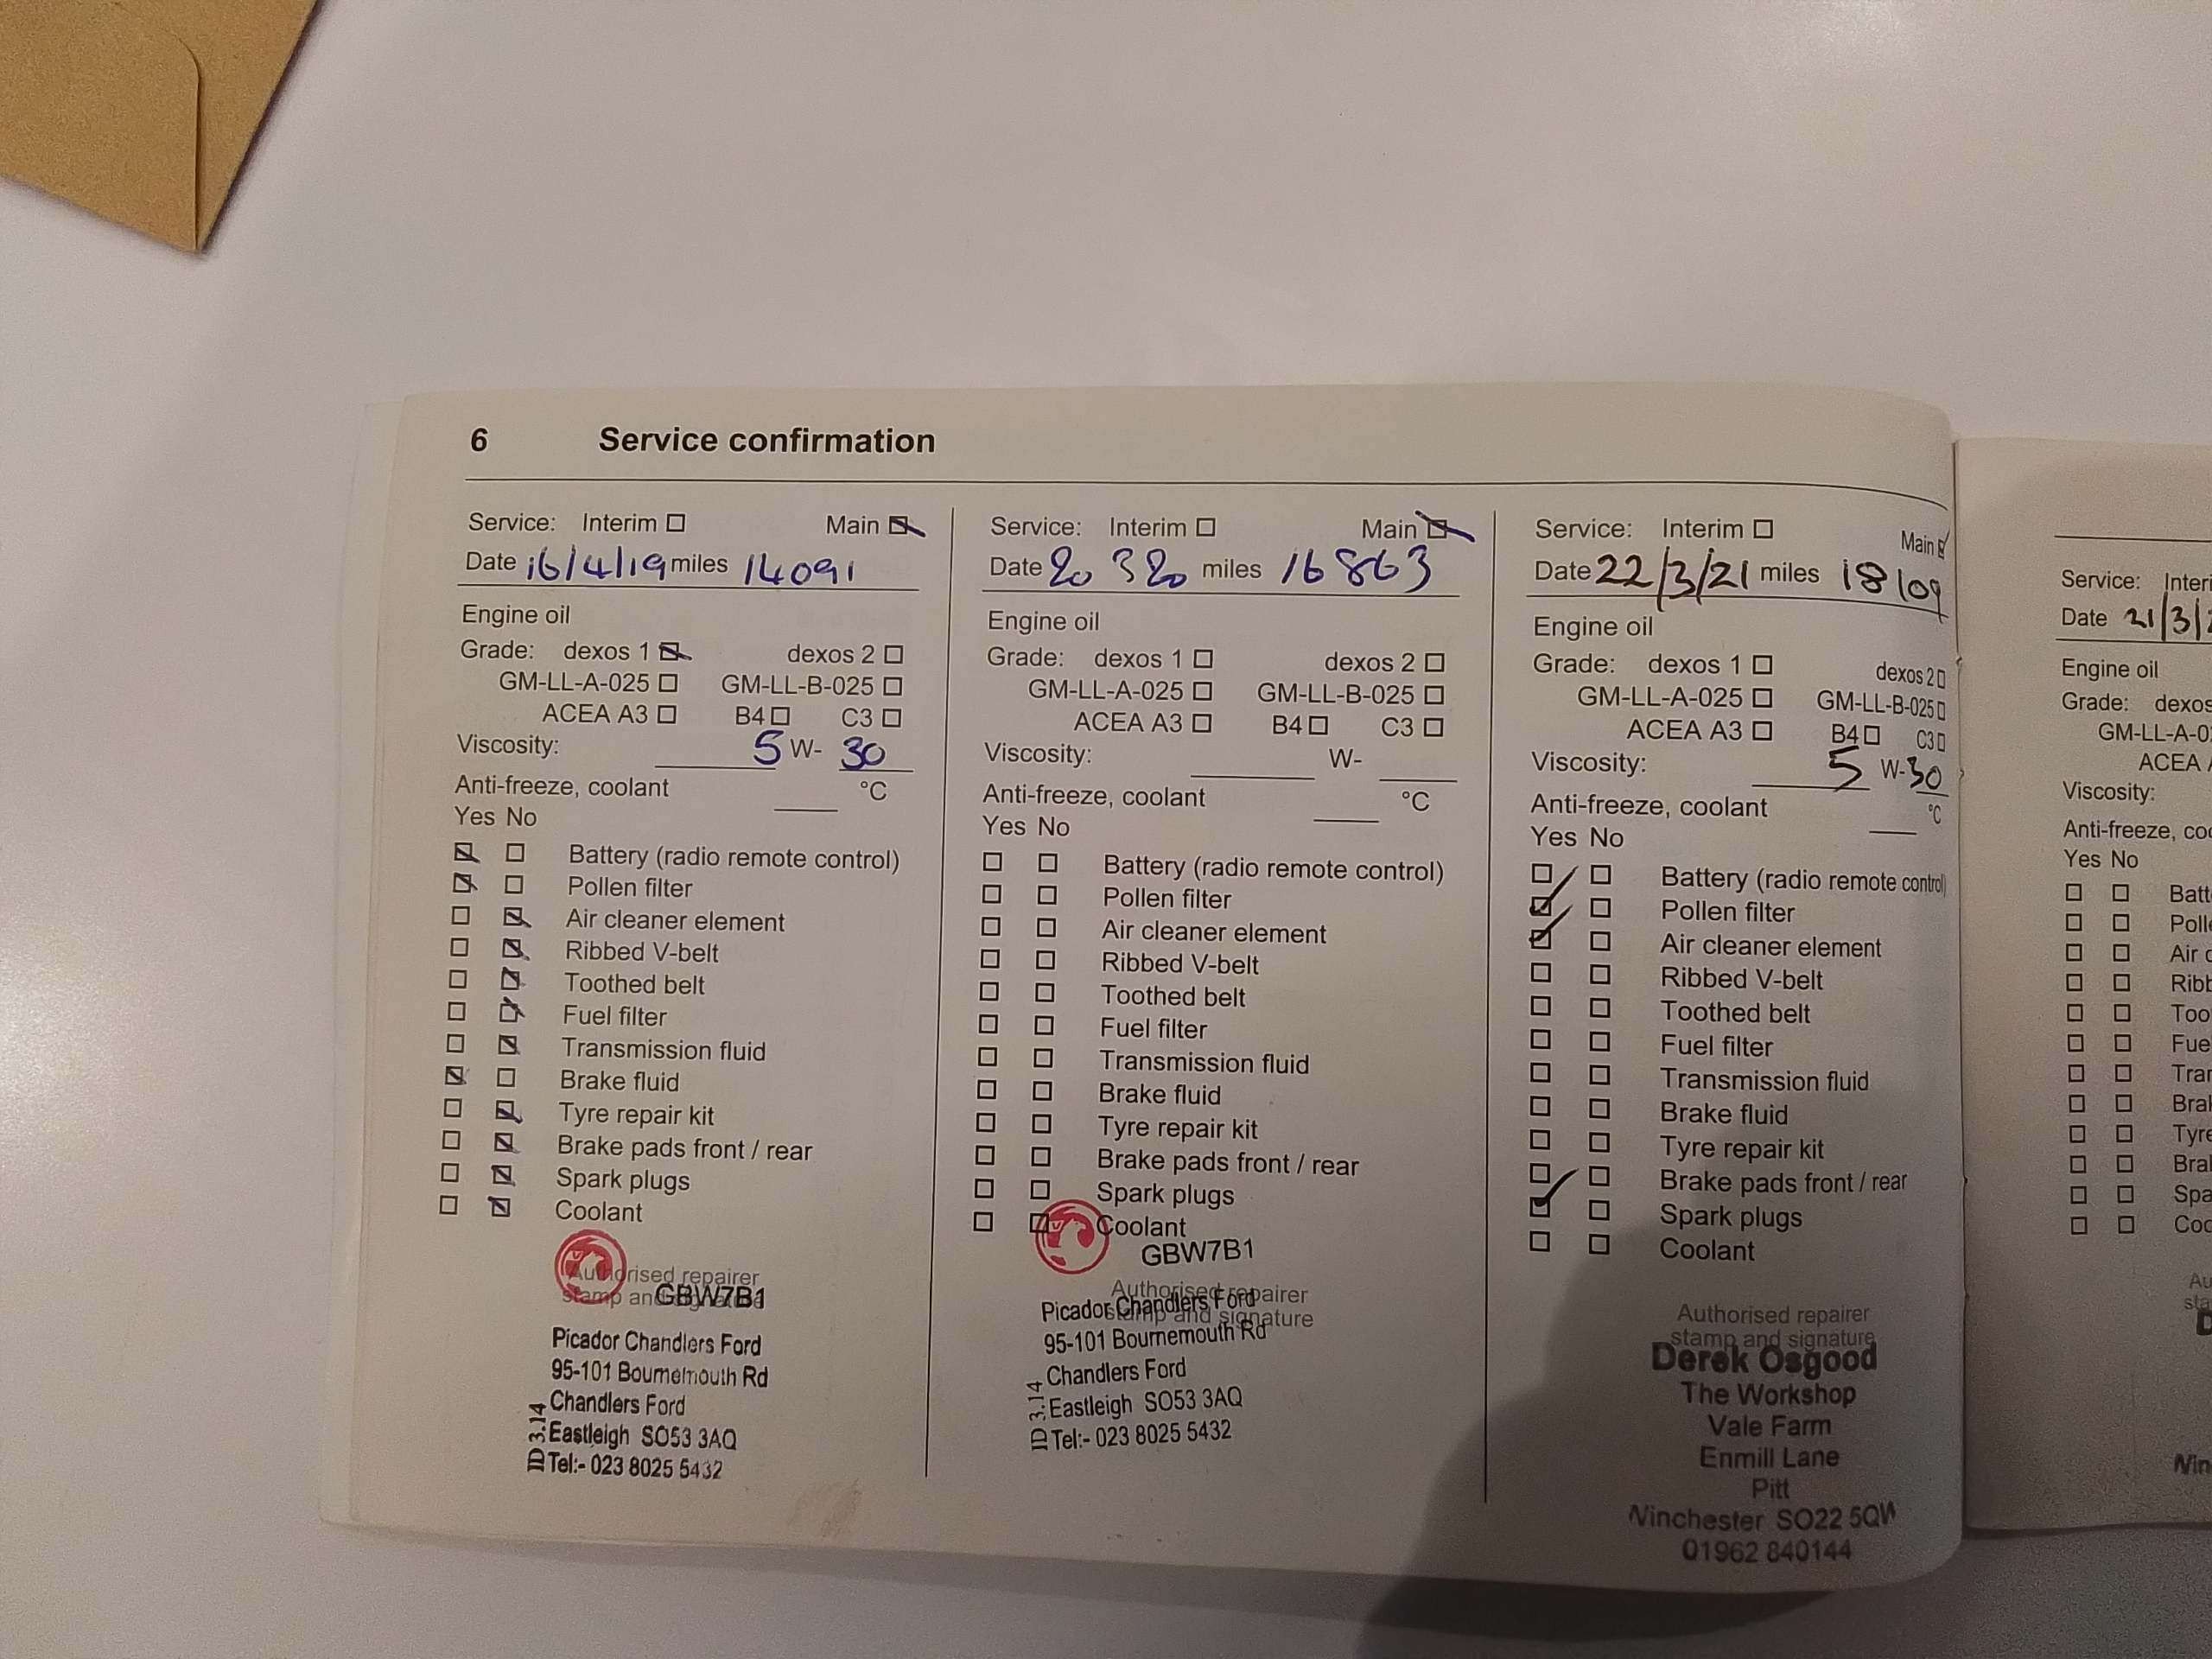 6 Service confirmation
Service: Interim Main
Date 16/4/19 miles 14091
Engine oil
Grade: dexos 1 dexos 2
GM-LL-A-025 GM-LL-B-025
ACEA A3 B4 C3
Viscosity: 5 W- 30
Anti-freeze, coolant °C
Yes No
Battery (radio remote control)
Pollen filter
Air cleaner element
Ribbed V-belt
Toothed belt
Fuel filter
Transmission fluid
Brake fluid
Tyre repair kit
Brake pads front / rear
Spark plugs
Coolant
Authorised repairer
stamp and signature
GBW7B1
Picador Chandlers Ford
95-101 Bournemouth Rd
Chandlers Ford
Eastleigh SO53 3AQ
Tel:- 023 8025 5432
ID 3.14
Service: Interim Main
Date 20 3 20 miles 16863
Engine oil
Grade: dexos 1 dexos 2
GM-LL-A-025 GM-LL-B-025
ACEA A3 B4 C3
Viscosity: W-
Anti-freeze, coolant °C
Yes No
Battery (radio remote control)
Pollen filter
Air cleaner element
Ribbed V-belt
Toothed belt
Fuel filter
Transmission fluid
Brake fluid
Tyre repair kit
Brake pads front / rear
Spark plugs
Coolant
GBW7B1
Authorised repairer
stamp and signature
Picador Chandlers Ford
95-101 Bournemouth Rd
Chandlers Ford
Eastleigh SO53 3AQ
Tel:- 023 8025 5432
ID 3.14
Service: Interim Main
Date 22/3/21 miles 18109
Engine oil
Grade: dexos 1 dexos 2
GM-LL-A-025 GM-LL-B-025
ACEA A3 B4 C3
Viscosity: 5 W-30
Anti-freeze, coolant °C
Yes No
Battery (radio remote control)
Pollen filter
Air cleaner element
Ribbed V-belt
Toothed belt
Fuel filter
Transmission fluid
Brake fluid
Tyre repair kit
Brake pads front / rear
Spark plugs
Coolant
Authorised repairer
stamp and signature
Derek Osgood
The Workshop
Vale Farm
Enmill Lane
Pitt
Winchester SO22 5QW
01962 840144
Service:
Date 21/3/
Engine oil
Grade:
ACEA
Viscosity:
Anti-freeze,
Yes No